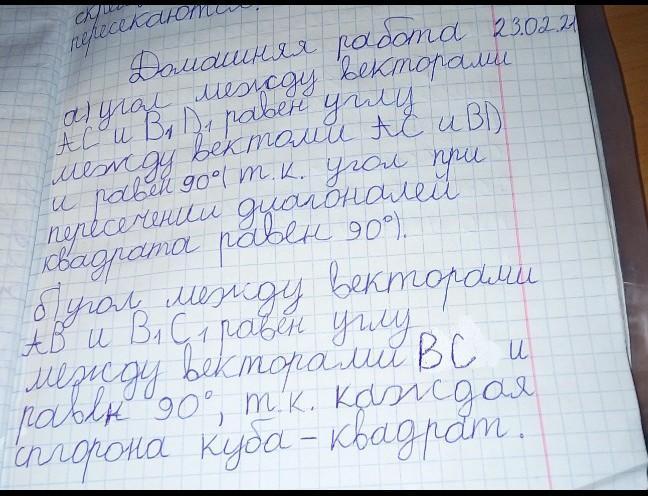 пересекаются.
Домашняя работа 23.02.21
а) угол между векторами
AC и B₁D₁ равен углу
между вектоми AC и BD
и равен 90° (т.к. угол при
пересечении диагоналей
квадрата равен 90°).
б) угол между векторами
AB и B₁C₁ равен углу
между векторами BC и
равен 90°, т.к. каждая
сторона куба – квадрат.